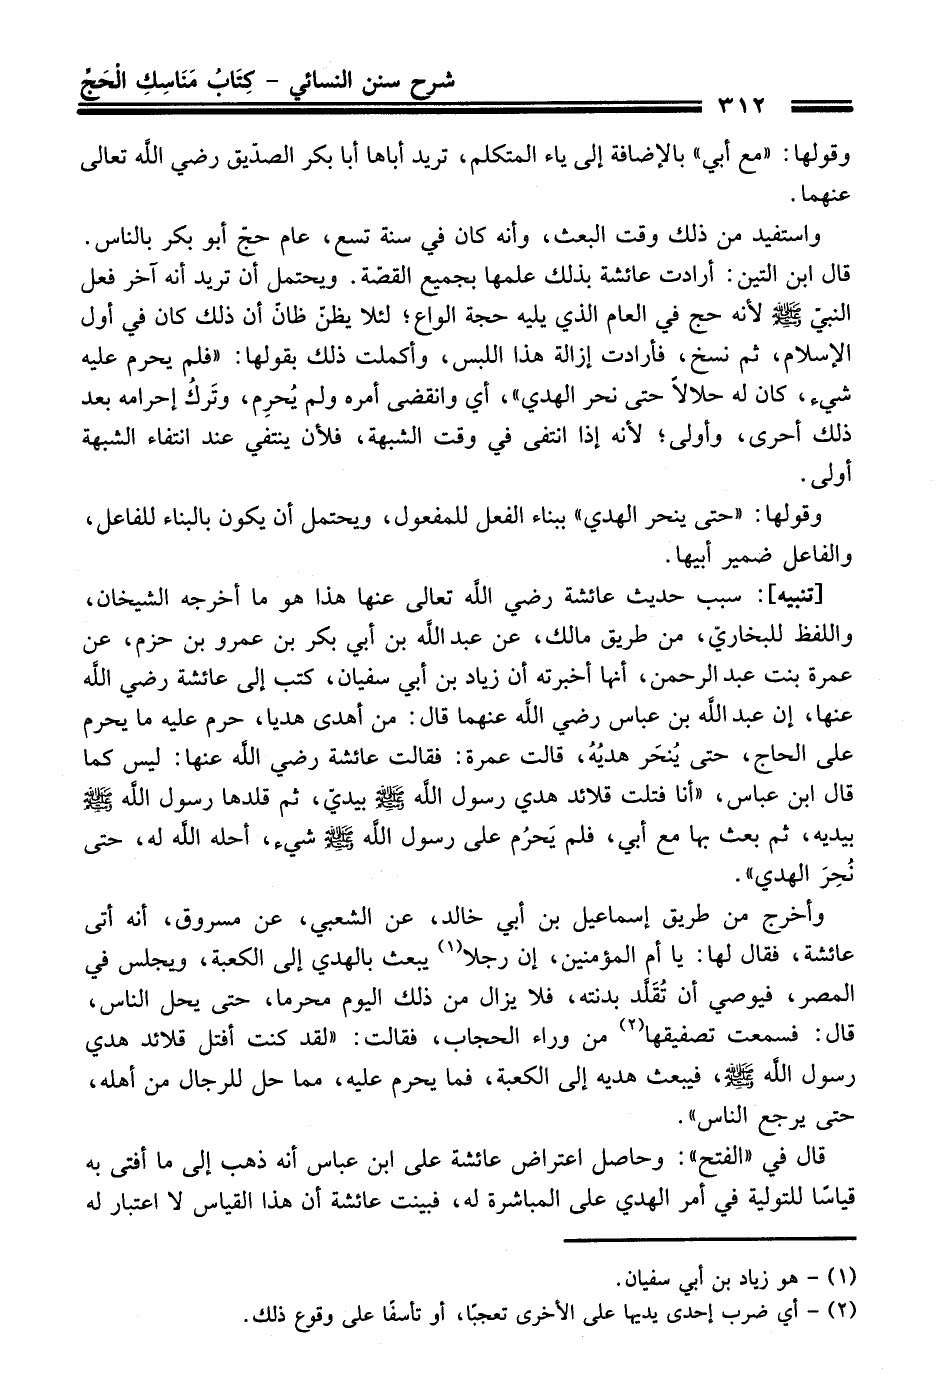 شرح سنن النسائي - كِتَابُ مَنَاسِكِ الْحَجِّ
٣١٢
وقولها: «مع أبي» بالإضافة إلى ياء المتكلم، تريد أباها أبا بكر الصدّيق رضي اللَّه تعالى
عنهما.
واستفيد من ذلك وقت البعث، وأنه كان في سنة تسع، عام حجّ أبو بكر بالناس.
قال ابن التين: أرادت عائشة بذلك علمها بجميع القصّة. ويحتمل أن تريد أنه آخر فعل
النبيّ ﷺ لأنه حج في العام الذي يليه حجة الواع؛ لئلا يظنّ ظانّ أن ذلك كان في أول
الإسلام، ثم نسخ، فأرادت إزالة هذا اللبس، وأكملت ذلك بقولها: «فلم يحرم عليه
شيء، كان له حلالاً حتى نحر الهدي»، أي وانقضى أمره ولم يُحرِم، وتَركُ إحرامه بعد
ذلك أحرى، وأولى؛ لأنه إذا انتفى في وقت الشبهة، فلأن ينتفي عند انتفاء الشبهة
أولى.
وقولها: «حتى ينحر الهدي» ببناء الفعل للمفعول، ويحتمل أن يكون بالبناء للفاعل،
والفاعل ضمير أبيها.
[تنبيه]: سبب حديث عائشة رضي اللَّه تعالى عنها هذا هو ما أخرجه الشيخان،
واللفظ للبخاريّ، من طريق مالك، عن عبد اللَّه بن أبي بكر بن عمرو بن حزم، عن
عمرة بنت عبد الرحمن، أنها أخبرته أن زياد بن أبي سفيان، كتب إلى عائشة رضي اللَّه
عنها، إن عبد اللَّه بن عباس رضي اللَّه عنهما قال: من أهدى هديا، حرم عليه ما يحرم
على الحاج، حتى يُنحَر هديُهُ، قالت عمرة: فقالت عائشة رضي اللَّه عنها: ليس كما
قال ابن عباس، «أنا فتلت قلائد هدي رسول اللَّه ﷺ بيديّ، ثم قلدها رسول اللَّه ﷺ
بيديه، ثم بعث بها مع أبي، فلم يَحرُم على رسول اللَّه ﷺ شيء، أحله اللَّه له، حتى
نُحِرَ الهدي».
وأخرج من طريق إسماعيل بن أبي خالد، عن الشعبي، عن مسروق، أنه أتى
عائشة، فقال لها: يا أم المؤمنين، إن رجلا(١) يبعث بالهدي إلى الكعبة، ويجلس في
المصر، فيوصي أن تُقَلَّد بدنته، فلا يزال من ذلك اليوم محرما، حتى يحل الناس،
قال: فسمعت تصفيقها(٢) من وراء الحجاب، فقالت: «لقد كنت أفتل قلائد هدي
رسول اللَّه ﷺ، فيبعث هديه إلى الكعبة، فما يحرم عليه، مما حل للرجال من أهله،
حتى يرجع الناس».
قال في «الفتح»: وحاصل اعتراض عائشة على ابن عباس أنه ذهب إلى ما أفتى به
قياسًا للتولية في أمر الهدي على المباشرة له، فبينت عائشة أن هذا القياس لا اعتبار له
(١) - هو زياد بن أبي سفيان.
(٢) - أي ضرب إحدى يديها على الأخرى تعجبًا، أو تأسفًا على وقوع ذلك.